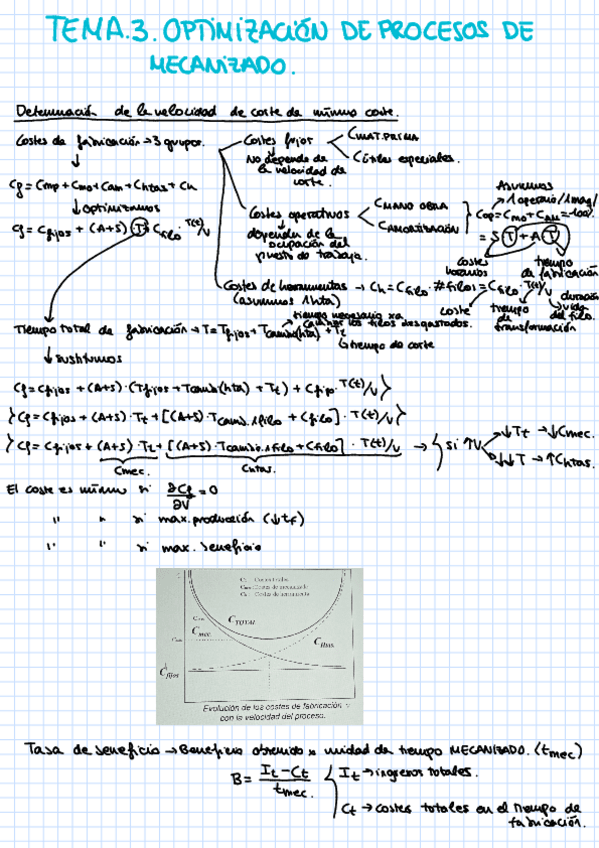 TEMA.3. OPTIMIZACIÓN DE PROCESOS DE
MECANIZADO.
Determinación de la velocidad de corte de mínimo coste.
Costes de fabricación → 3 grupos.
Costes fijos
CMAT.PRIMA
No depende de
la velocidad de
corte.
Cútiles especiales.
Cf = Cmp + Cmo + Cam + Chtas + Ch
↓ optimizamos
Cf = Cfijos + (A+S) · T · Cfilo · T(t)/V
Costes operativos
dependen de la
ocupación del
puesto de trabajo.
CMANO OBRA
CAMORTIZACIÓN
Asumimos
1 operario/1 maq/
Cop = Cmo + CAM = 100%
= S T + A T
costes
horarios
tiempo
de fabricación
Costes de herramientas → Ch = Cfilo · #filos = Cfilo · T(t)/V
(asumimos 1 hta)
coste
tiempo
de
transformación
duración
vida
del filo.
tiempo necesario xa
cambiar los filos desgastados.
Tiempo total de fabricación → T = Tfijos + Tcambio(hta) + Tt
↳ tiempo de corte
↓ sustituimos
Cf = Cfijos + (A+S) · (Tfijos + Tcamb(hta) + Tt) + Cfijo · T(t)/V
Cf = Cfijos + (A+S) · Tt + [(A+S) · Tcamb. 1 filo + Cfilo] · T(t)/V
Cf = Cfijos + (A+S) · Tt + [(A+S) · Tcambio.1 filo + Cfilo] · T(t)/V → si ↑V
↓Tt → ↓Cmec.
↓↓T → ↑Chtas.
Cmec.
Chtas.
El coste es mínimo si ∂Cf/∂V = 0
" " si max. producción (↓tf)
" " si max. beneficio
Ct : Costes totales
Cmec : Costes de mecanizado
Ch : Costes de herramienta
CTOTAL
Cmec.
CHtas.
Cfijos
Evolución de los costes de fabricación
con la velocidad del proceso.
Tasa de beneficio → Beneficio obtenido x unidad de tiempo MECANIZADO. (tmec)
B = It - Ct / tmec.
It → ingresos totales.
Ct → costes totales en el tiempo de
fabricación.